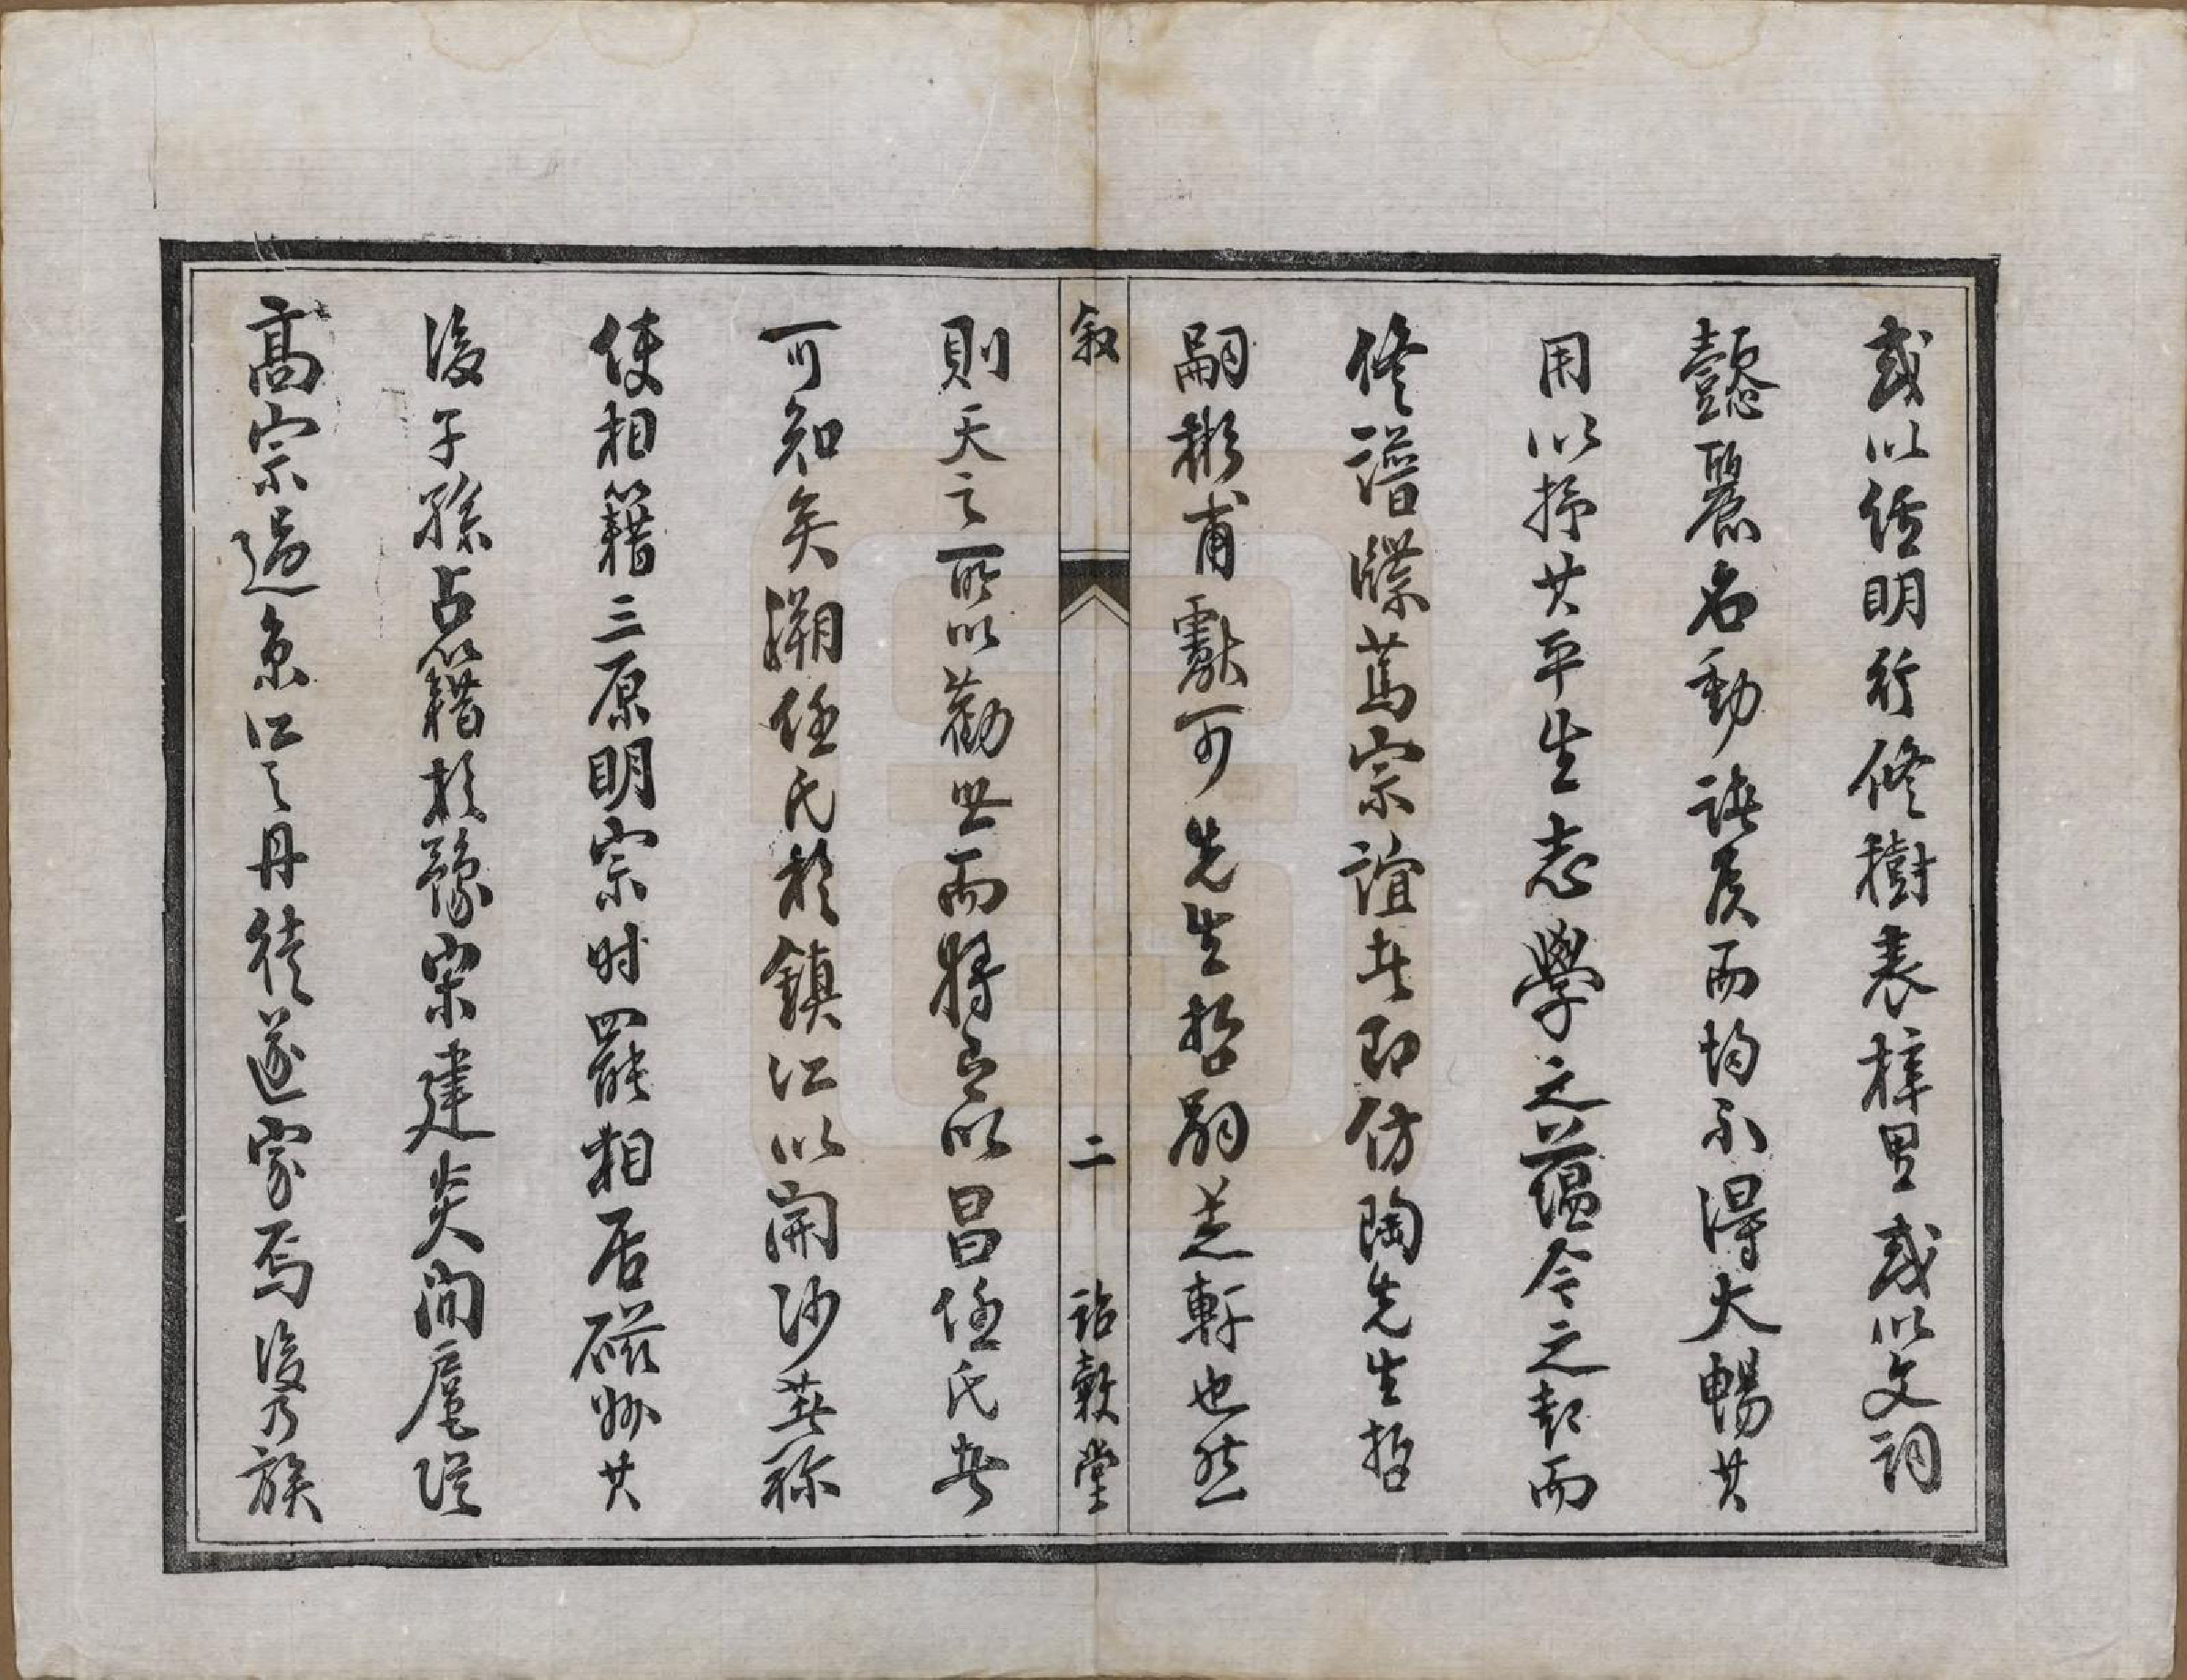 或以經明行修樹表梓里或以文詞
懿麗名動諸侯而均不得大暢其
用以抒其平生志學之蘊今之起而
修譜牒篤宗誼者即仿陶先生哲
嗣彬甫獻可先生哲嗣芝軒也然
敘 二 詒穀堂
則天之所以勸世而將之以昌任氏者
可知矣溯任氏於鎮江以開沙共稱
使相籍三原明宗時罷相居磁州其
後子孫占籍於豫宋建炎間扈從
高宗過京江之丹徒遂家焉後乃族